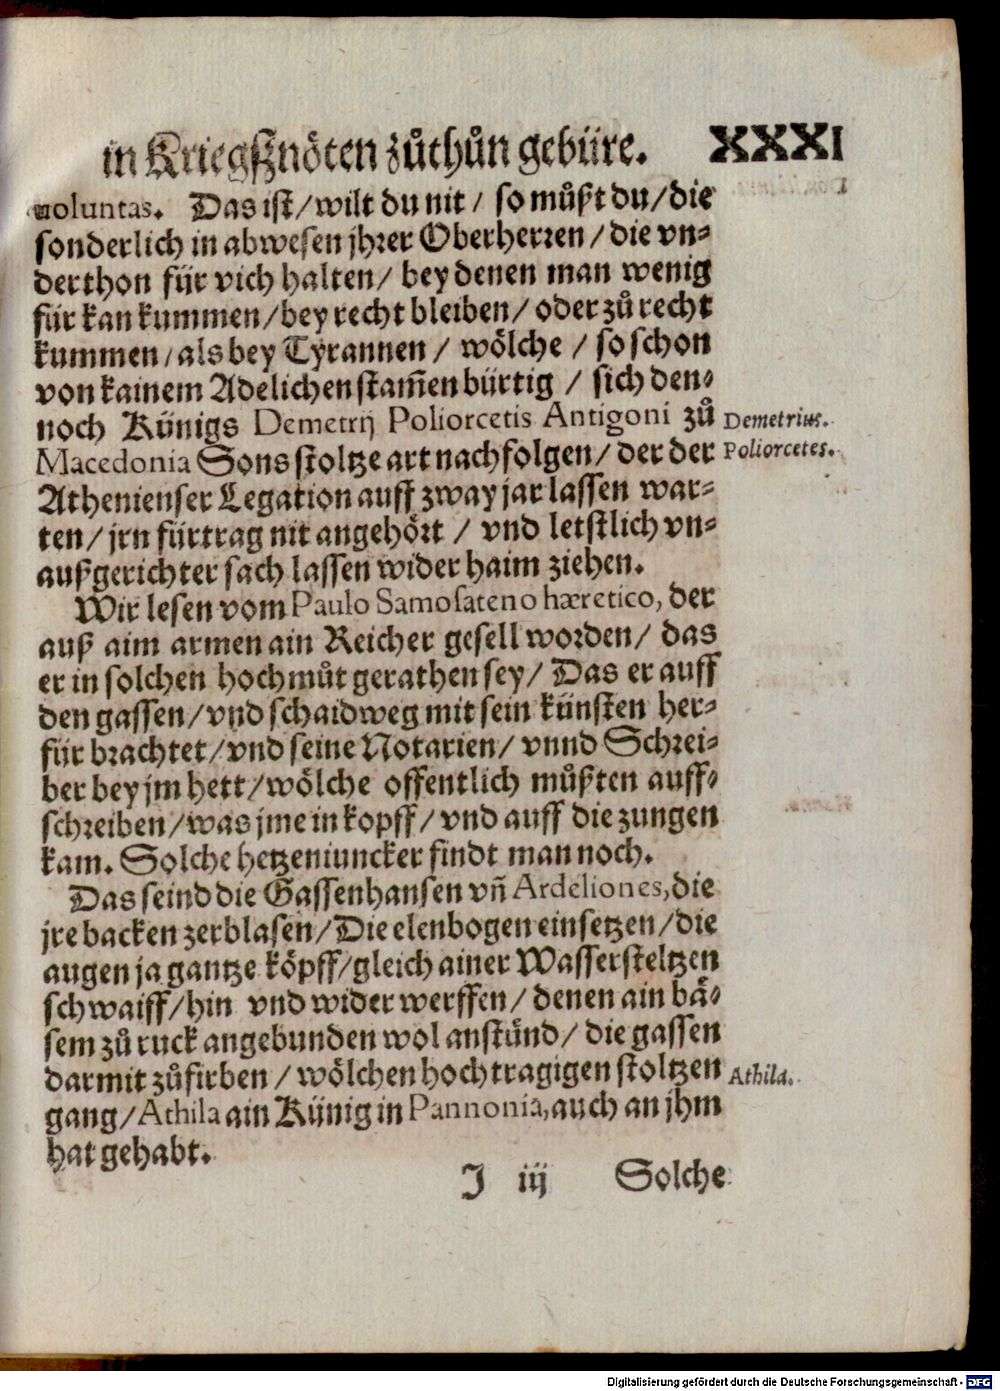 in Kriegßnöten zůthůn gebüre. XXXI
uoluntas. Das ist/wilt du nit/ so můßt du/die
sonderlich in abwesen jhrer Oberherren/die vn-
derthon für vich halten/ bey denen man wenig
für kan kummen/bey recht bleiben/oder zů recht
kummen/als bey Tyrannen/ wölche/ so schon
von kainem Adelichen stam̃en bürtig/ sich den-
noch Künigs Demetrij Poliorcetis Antigoni zů
Demetrius.
Macedonia Sons stoltze art nachfolgen/der der
Poliorcetes.
Athenienser Legation auff zway jar lassen war-
ten/jrn fürtrag nit angehört/ vnd letstlich vn-
außgerichter sach lassen wider haim ziehen.
Wir lesen vom Paulo Samosateno hæretico, der
auß aim armen ain Reicher gesell worden/ das
er in solchen hochmůt gerathen sey/ Das er auff
den gassen/vnd schaidweg mit sein künsten her-
für brachtet/vnd seine Notarien/ vnnd Schrei-
ber bey jm hett/wölche offentlich můßten auff-
schreiben/was jme in kopff/vnd auff die zungen
kam. Solche hetzeniuncker findt man noch.
Das seind die Gassenhansen vñ Ardeliones, die
jre backen zerblasen/Die elenbogen einsetzen/die
augen ja gantze köpff/gleich ainer Wassersteltzen
schwaiff/hin vnd wider werffen/denen ain bä-
sem zů ruck angebunden wol anstünd/ die gassen
darmit zůfirben/ wölchen hochtragigen stoltzen
Athila.
gang/Athila ain Künig in Pannonia, auch an jhm
hat gehabt.
J iij Solche
Digitalisierung gefördert durch die Deutsche Forschungsgemeinschaft - DFG